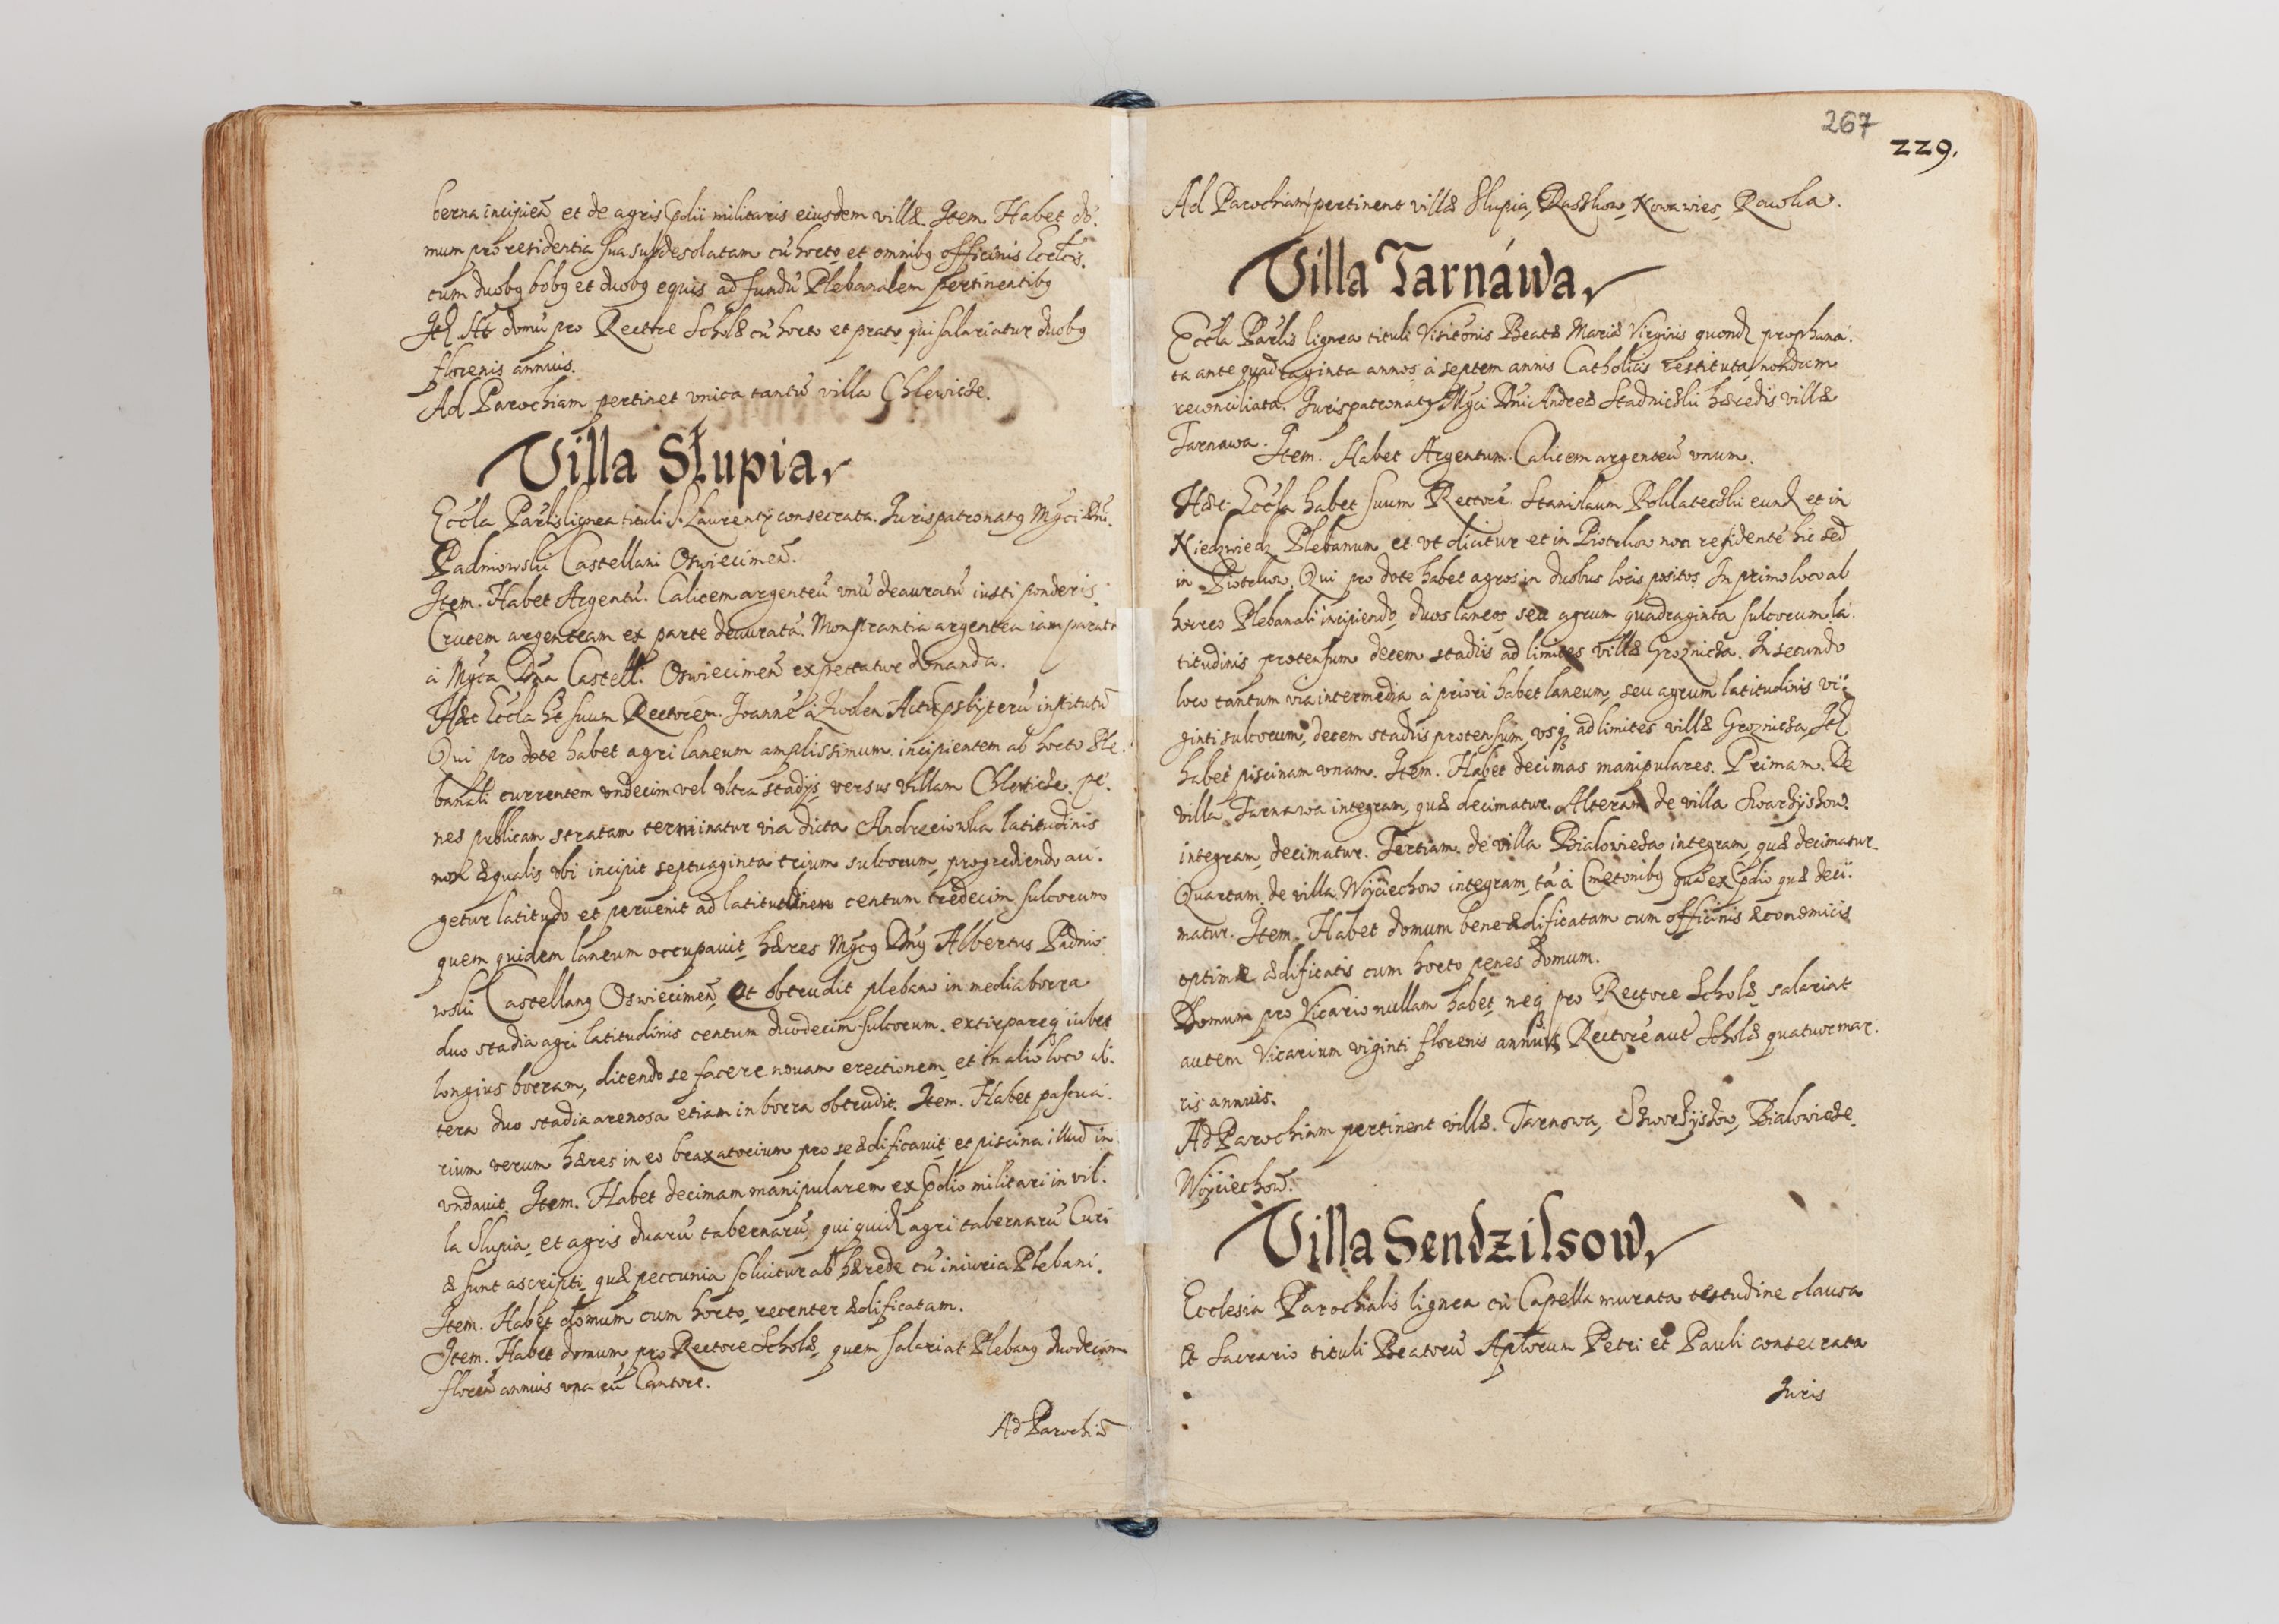 berna incipien̄ et de agris p̱dii militaris eiusdem villæ. Item. Habet do-
mum pro residentia sua sub desolatam cū horto et omnibꝫ officinis
cum duobꝫ bobꝫ et duobꝫ equis ad fundū Plebanalem pertinentibꝫ
domū pro Rectore Scholæ cū horto et prato, qui salariatur duobꝫ
florenis annuis.
Ad Parochiam pertinet vnica tantū villa Chlewicze.
Villa Słupia,
Eccła Parłis lignea tituli S. Laurentÿ consecrata. Iurispatronatꝫ Mgci Dni.
Padniowskii Castellani Oswiecimen̄.
Item. Habet Argentū. Calicem argenteū vnū deauratū iusti ponderis.
Crucem argenteam ex parte deauratā. Monstrantia argentea iam parata
à Mgca Dna Castell: Oswiecimen̄ expectatur donanda.
Hæc Eccła ht̄ suum Rectorem. Joannē à Zwolen institutū
Qui pro dote habet agri laneum amplissimum incipientem ab horto Ple-
banali currentem vndecim vel vltra stadÿs, versus villam Chlewicze. pe-
nes publicam stratam terminatur via dicta Andreiowska latitudinis
non æqualis vbi incipit septuaginta trium sulcorum, progrediendo au-
getur latitudo et peruenit ad latitudinem centum tredecim sulcorum
quem quidem laneum occupauit hæres Mgcꝫ Dnꝫ Albertus Padnio-
wskii Castellanꝫ Oswiecimen̄ et obtrudit plebano in media borra
duo stadia agri latitudinis centum duodecim sulcorum. extirpareqꝫ iubet
longius borram, dicendo se facere nouam erectionem, et in alio loco al-
tera duo stadia arenosa etiam in borra obtrudit. Item. Habet pascua-
rium verum hæres in eo braxatorium pro se ædificauit et piscina illud in-
vndauit. Item. Habet decimam manipularem ex p̱dio militari in vil-
la Slupia, et agris duarū tabernarū, qui quidē agri tabernarū Curi
æ sunt ascripti, quæ peccunia soluitur ab hærede cū iniuria Plebani.
Item. Habet domum cum horto, recenter ædificatam.
Item. Habet domum pro Rectore Scholæ, quem salariat Plebanꝫ duodecim
floren̄ annuis vna cū Cantore.
Ad Parochiā
267
229.
Ad Parochiam pertinent villæ Slupia, Raszkow, Nowawies, Rawka.
Villa Tarnáwa,
Eccła Parłis lignea tituli Visitōnis Beatæ Mariæ Virginis quondā prophana-
ta ante quadraginta annos, à septem annis Catholicis restituta, nondum
reconciliata. Jurispatronatꝫ Mgci Dni Andreæ Stadnickii hæredis villæ
Tarnawa. Item. Habet Argentum. Calicem argenteū vnum.
Hæc Eccła habet suum Rectorē Stanislaum eundē et in
Niedzwiedz Plebanum et vt dicitur et in Piotrkow non residentē hic sed
in Piotrkow. Qui pro dote habet agros in duobus locis positos In primo loco ab
horreo Plebanali incipiendo, duos laneos, seu agrum quadraginta sulcorum la-
titudinis protensum decem stadiis ad limites villæ Groznicka. In secundo
loco tantum via intermedia à priori habet laneum, seu agrum latitudinis vi-
ginti sulcorum, decem stadiis protensum, vsqꝫ ad limites villæ Groznicka, Itē
habet piscinam vnam. Item. Habet decimas manipulares. Primam. De
villa Tarnawa integram, quæ decimatur. Alteram de villa
integram, decimatur. Tertiam. de villa Bialowieża integram, quæ decimatur.
Quartam de villa Woÿciechow integram, tā à Cmetonibꝫ quā ex p̱dio quæ deci-
matur. Item. Habet domum bene ædificatam cum officinis æconomicis
optimæ ædificatis cum horto penes domum.
Domum pro Vicario nullam habet, neqꝫ pro Rectore Scholæ, salariat
autem Vicarium viginti florenis annuis, Rectorē aut Scholæ quatuor mar-
ris annuis.
Ad Parochiam pertinent villæ. Tarnowa, Bialowicze,
Woÿciechow.
Villa Sendzilsow,
Ecclesia Parochialis lignea cū Capella murata testudine clausa
et Sacrario tituli Beatorū Aplorum Petri et Pauli consecrata
Juris